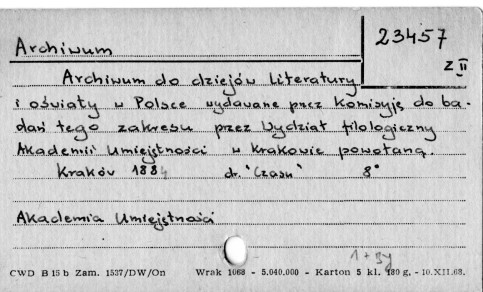 Archiwum
23457
Z II
Archiwum do dziejów Literatury
i oświaty w Polsce wydawane przez Komisyję do ba-
dań tego zakresu przez Wydział filologiczny
Akademii Umiejętności w Krakowie powołaną.
Kraków 1884 dr. "Czasu" 8°
Akademia Umiejętności
CWD B 15 b Zam. 1537/DW/On Wrak 1068 - 5.040.000 - Karton 5 kl. 180 g. - 10.XII.68.